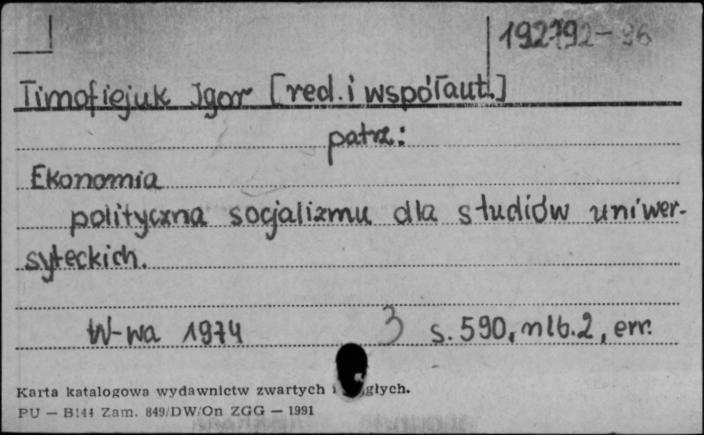 192792-96
Timofiejuk Igor [red. i współaut.]
patrz:
Ekonomia
polityczna socjalizmu dla studiów uniwer-
syteckich.
W-wa 1974 3 s. 590, nlb. 2, err.
Karta katalogowa wydawnictw zwartych i głych.
PU — B144 Zam. 849/DW/On ZGG — 1991